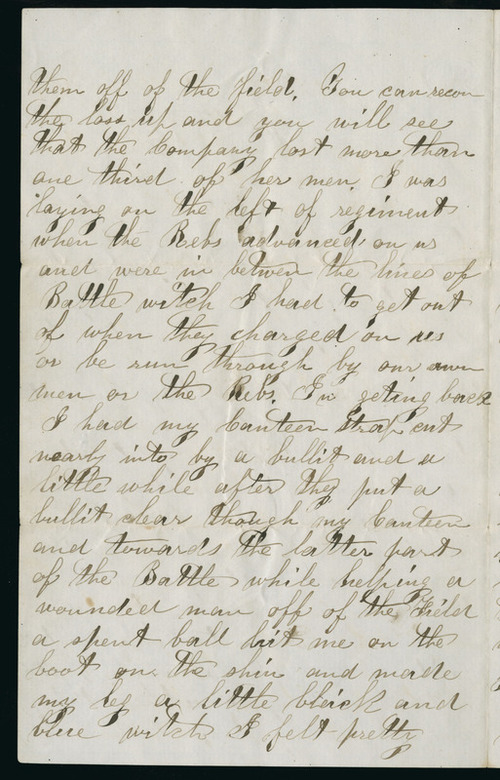 them off of the field. You can recon
the loss up and you will see
that the Company lost more than
one third of her men. I was
laying on the left of regiment
when the Rebs advanced on us
and were in betwen the lines of
Battle witch I had to get out
of when they charged on us
or be run through by our own
men or the Rebs. In geting back
I had my Canteen strap cut
nearly into by a bullit and a
little while after they put a
bullit clear though my Canteen
and towards the latter part
of the Battle while helping a
wounded man off of the Field
a spent ball hit me on the
boot on the shin and made
my leg a little black and
blue witch I felt pretty